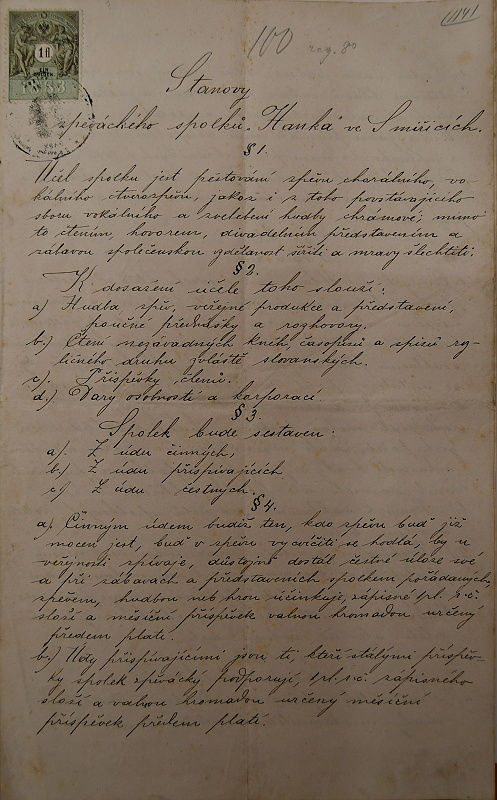 1141
100 reg. 80
1 fl
1883
Stanovy
zpěváckého spolku „Hanka" ve Smiřicích.
§ 1.
Účel spolku jest pěstování zpěvu chorálního, vo-
kálního čtverozpěvu, jakož i z toho povstávajícího
sboru vokálního a zvelebení hudby chrámové; mimo
to čtením, hovorem, divadelním představením a
zábavou společenskou vzdělanost šířiti a mravy šlechtiti.
§ 2.
K dosažení účele toho slouží:
a) Hudba, zpěv, veřejné produkce a představení,
poučné přednášky a rozhovory.
b.) Čtení nezávadných kněh, časopisů a spisů roz-
ličného druhu zvláště slovanských.
c.) Příspěvky členů.
d.) Dary osobností a korporací.
§ 3.
Spolek bude sestaven:
a). Z údů činných,
b) Z údů přispívajících
c) Z údů čestných.
§ 4.
a). Činným údem budiž ten, kdo zpěvu buď již
mocen jest, buď v zpěvu vycvičiti se hodlá, by u
veřejnosti zpívaje, důstojně dostál čestné úloze své
a při zábavách a představeních spolkem pořádaných
zpěvem, hudbou neb hrou účinkuje, zápisné 1 zl. r. č.
složí a měsíční příspěvek valnou hromadou určený
předem platí.
b.) Údy přispívajícími jsou ti, kteří stálými příspěv-
ky spolek zpěvácký podporují, 1 zl. r. č. zápisného
složí a valnou hromadou určený měsíční
příspěvek předem platí.